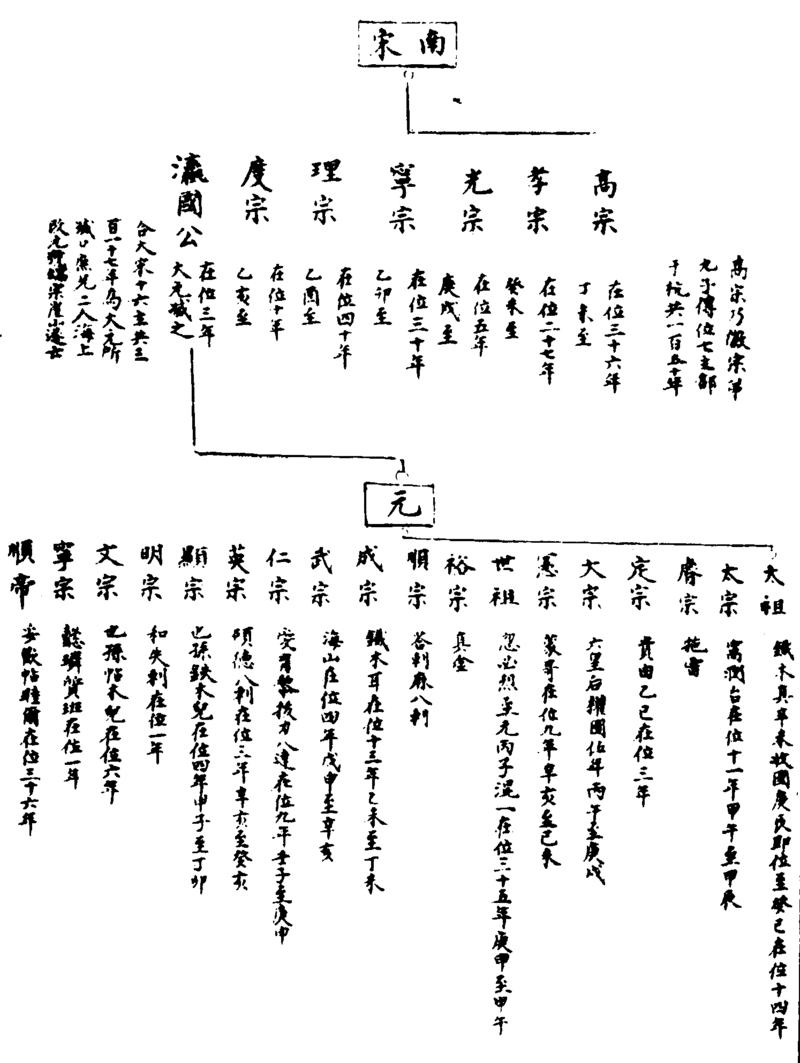 南宋
高宗乃徽宗第
九子傳位七主都
于杭共一百五十年
高宗
丁未至
在位三十六年
孝宗
癸未至
在位二十七年
光宗
庚戌至
在位五年
寧宗
乙卯至
在位三十年
理宗
乙酉至
在位四十年
度宗
乙亥至
在位十年
瀛國公
在位三年
大元滅之
合大宋十六主共三
百一十七年為大元所
滅 二人海上
改元 崖山
元
太祖
鐵木真辛未 國庚 即位至癸巳在位十四年
太宗
窩濶台在位十一年甲午至甲辰
睿宗
拖雷
定宗
貴由乙巳在位三年
大宗
六皇后 國 年丙午至庚戌
憲宗
蒙哥在位九年辛亥至己未
世祖
忽必烈至元丙子混一在位三十五年庚申至甲午
裕宗
真金
順宗
答剌麻八剌
成宗
鐵木耳在位十三年乙未至丁未
武宗
海山在位四年戊申至辛亥
仁宗
愛育黎拔力八達在位九年壬子至庚申
英宗
碩德八剌在位三年辛亥至癸亥
顯宗
也孫鉄木兒在位四年甲子至丁卯
明宗
和失剌在位一年
文宗
也孫帖木兒在位六年
寧宗
懿璘質班在位一年
順帝
妥歡帖睦爾在位三十六年